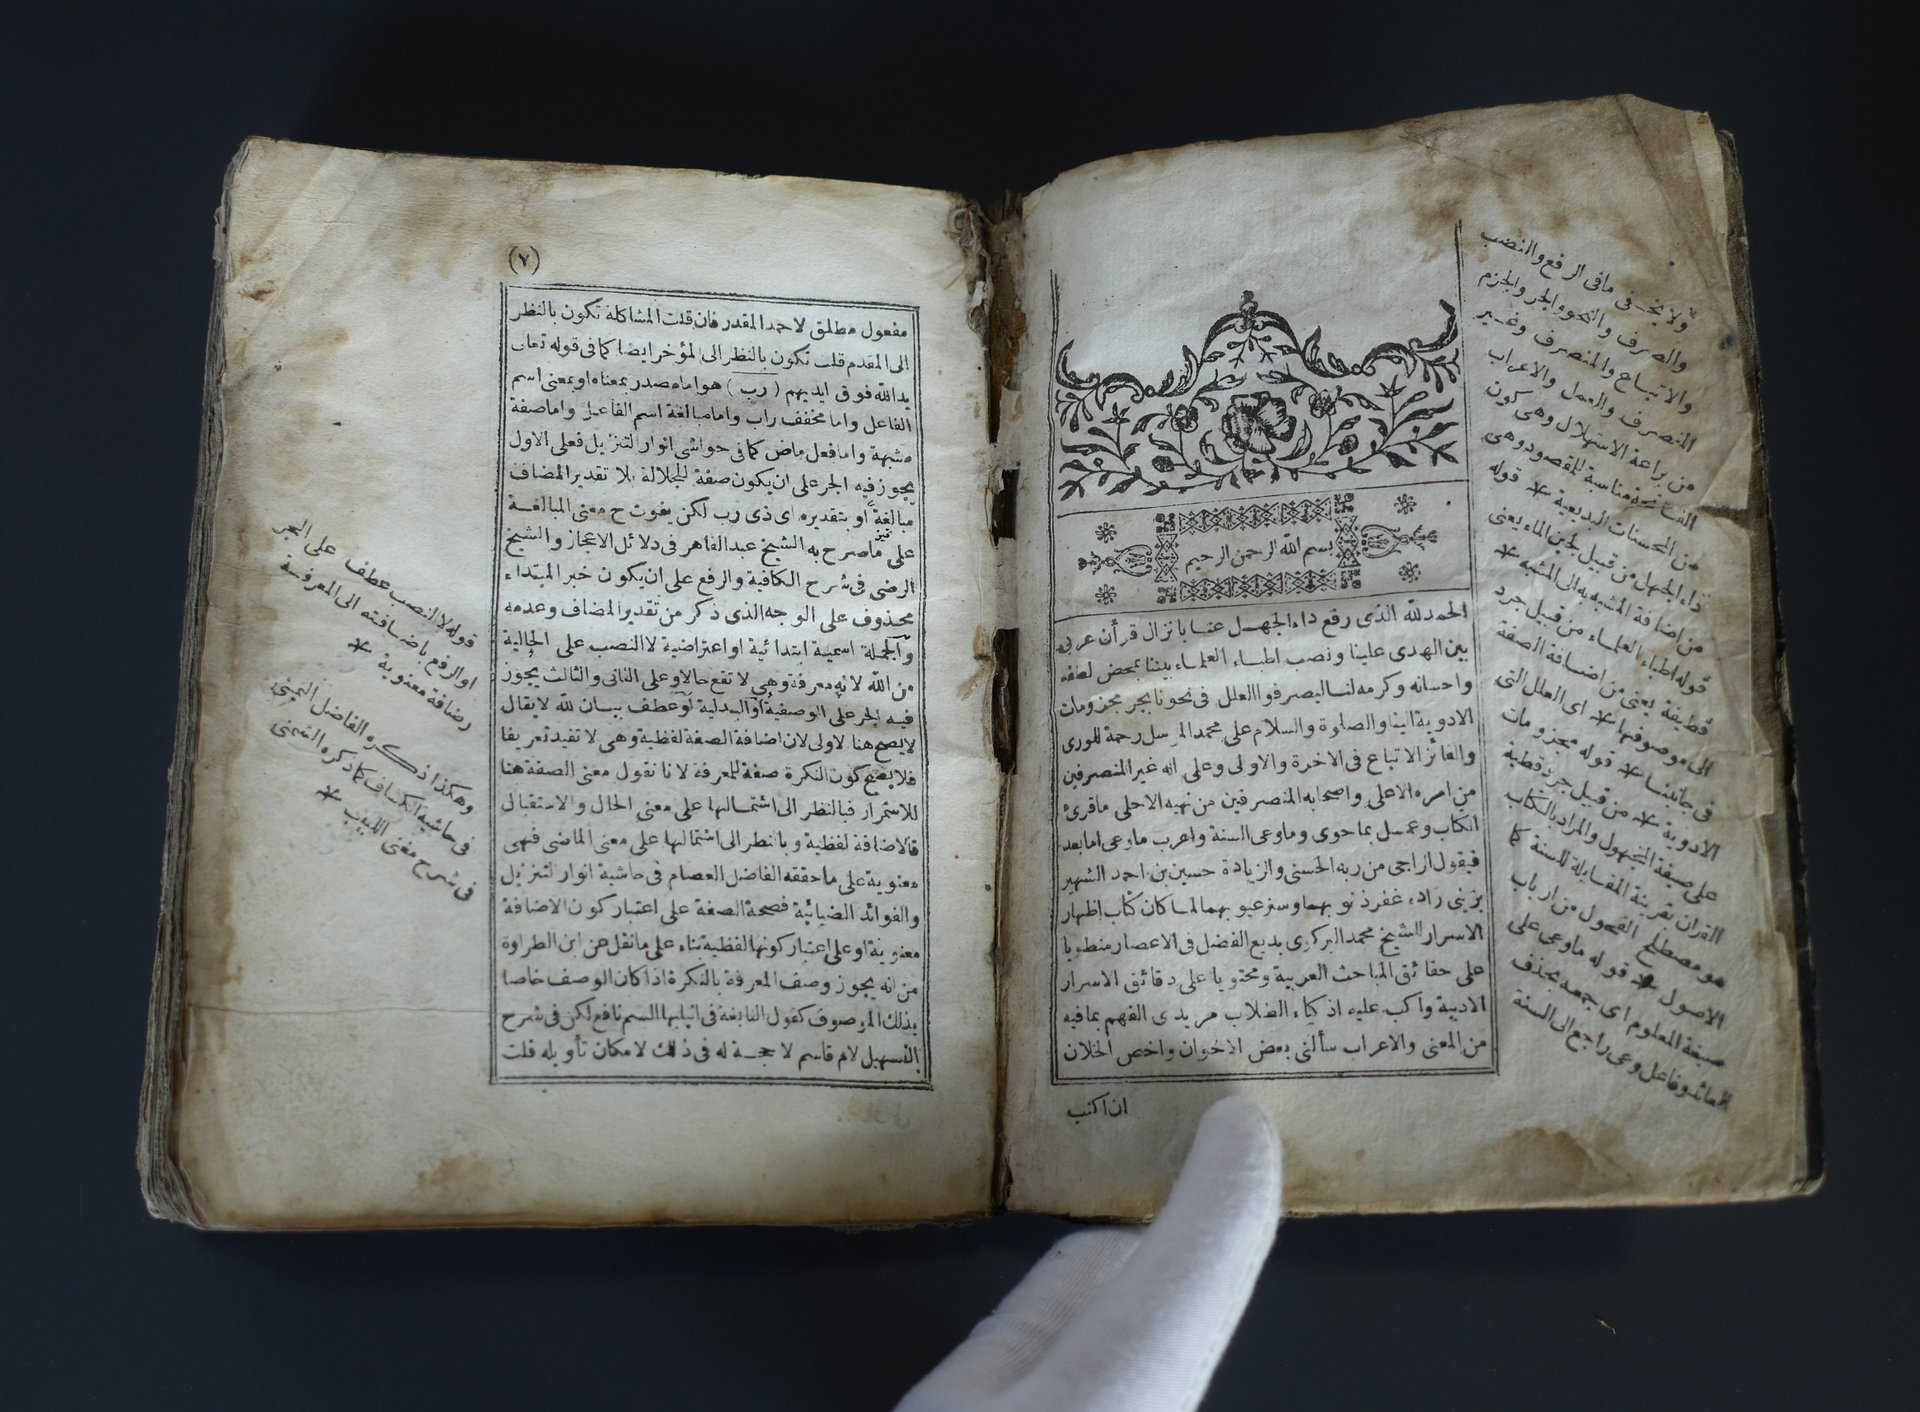 بسم الله الرحمن الرحيم
الحمد لله الذى رفع داء الجهل عنا بانزال قرأن عربى
بين الهدى علينا ونصب اطباء العلماء بيننا بمحض لطفه
واحسانه وكرمه لنا ليصرفوا العلل فى نحونا بجر مجزومات
الادوية الينا والصلوة والسلام على محمد المرسل رحمة للورى
والفائز الاتباع فى الاخرة والاولى وعلى اله غير المنصرفين
من امره الاعلى واصحابه المنصرفين من نهيه الاحلى ماقرئ
الكتاب وعمل بما حوى وما وعى السنة واعرب ما وعى اما بعد
فيقول الراجى من ربه الحسنى والزيادة حسين بن احمد الشهير
بزينى زاده غفر ذنوبهما وستر عيوبهما لما كان كتاب اظهار
الاسرار للشيخ محمد البركوى بديع الفضل فى الاعصار منطويا
على حقائق المباحث العربية ومحتويا على دقائق الاسرار
الادبية واكب عليه اذكياء الطلاب مريدى الفهم بما فيه
من المعنى والاعراب سألنى بعض الاخوان واخص الخلان
ان اكتب
ولا يخفى مافى الرفع والنصب
والصرف والنحو والجر والجزم
والاتباع والمنصرف وغير
المنصرف والعمل والاعراب
من براعة الاستهلال وهى كون
الفاتحة مناسبة للمقصود وهى
من المحسنات البديعية * قوله
داء الجهل من قبيل لجين الماء يعنى
من اضافة المشبه به الى المشبه *
قوله اطباء العلماء من قبيل جرد
قطيفة يعنى من اضافة الصفة
الى موصوفها * اى العلل التى
فى جانبنا * قوله مجزومات
الادوية * من قبيل جرد قطيفة
على صيغة المجهول والمراد بالكتاب
القران بقرينة المقابلة للسنة كما
هو مصطلح الفحول من ارباب
الاصول * قوله ما وعى على
صيغة المعلوم اى جمعه بحذف
العائد وفاعل وعى راجع الى السنة
(٧)
مفعول مطلق لاحمد المقدر فان قلت المشاكلة تكون بالنظر
الى المقدم قلت تكون بالنظر الى المؤخر ايضا كما فى قوله تعالى
يد الله فوق ايديهم (رب) هو اما مصدر بمعناه او بمعنى اسم
الفاعل واما مخفف راب واما مبالغة اسم الفاعل واما صفة
مشبهة واما فعل ماض كما فى حواشى انوار التنزيل فعلى الاول
يجوز فيه الجر على ان يكون صفة للجلالة بلا تقدير المضاف
مبالغة او بتقديره اى ذى رب لكن يفوت ح معنى المبالغة
على ماصرح به الشيخ عبد القاهر فى دلائل الاعجاز والشيخ
الرضى فى شرح الكافية والرفع على ان يكون خبر المبتداء
محذوف على الوجه الذى ذكر من تقدير المضاف وعدمه
والجملة اسمية ابتدائية او اعتراضية لا النصب على الحالية
من الله لانه معرفة وهى لا تقع حالا وعلى الثانى والثالث يجوز
فيه الجر على الوصفية او البدلية او عطف بيان لله لا يقال
لا يصح هنا لاولى لان اضافة الصفة لفظية وهى لا تفيد تعريفا
فلا يصح كون النكرة صفة للمعرفة لانا نقول معنى الصفة هنا
للاستمرار فبالنظر الى اشتمالها على معنى الحال والاستقبال
فالاضافة لفظية وبالنظر الى اشتمالها على معنى الماضى فهى
معنوية على ما حققه الفاضل العصام فى حاشية انوار التنزيل
والفوائد الضيائية فصحة الصفة على اعتبار كون الاضافة
معنوية او على اعتبار كونها لفظية بناء على ما نقل عن ابن الطراوة
من انه يجوز وصف المعرفة بالنكرة اذا كان الوصف خاصا
بذلك الموصوف كقول النابغة فى انيابها السم نافع لكن فى شرح
التسهيل لام قاسم لا حجة له فى ذلك لامكان تأويله قلت
قوله لا النصب عطف على الجر
او الرفع باضافته الى المعرفة
اضافة معنوية *
وهكذا ذكره الفاضل اليمنى
فى حاشية الكشاف كما ذكره الشمنى
فى شرح مغنى اللبيب *